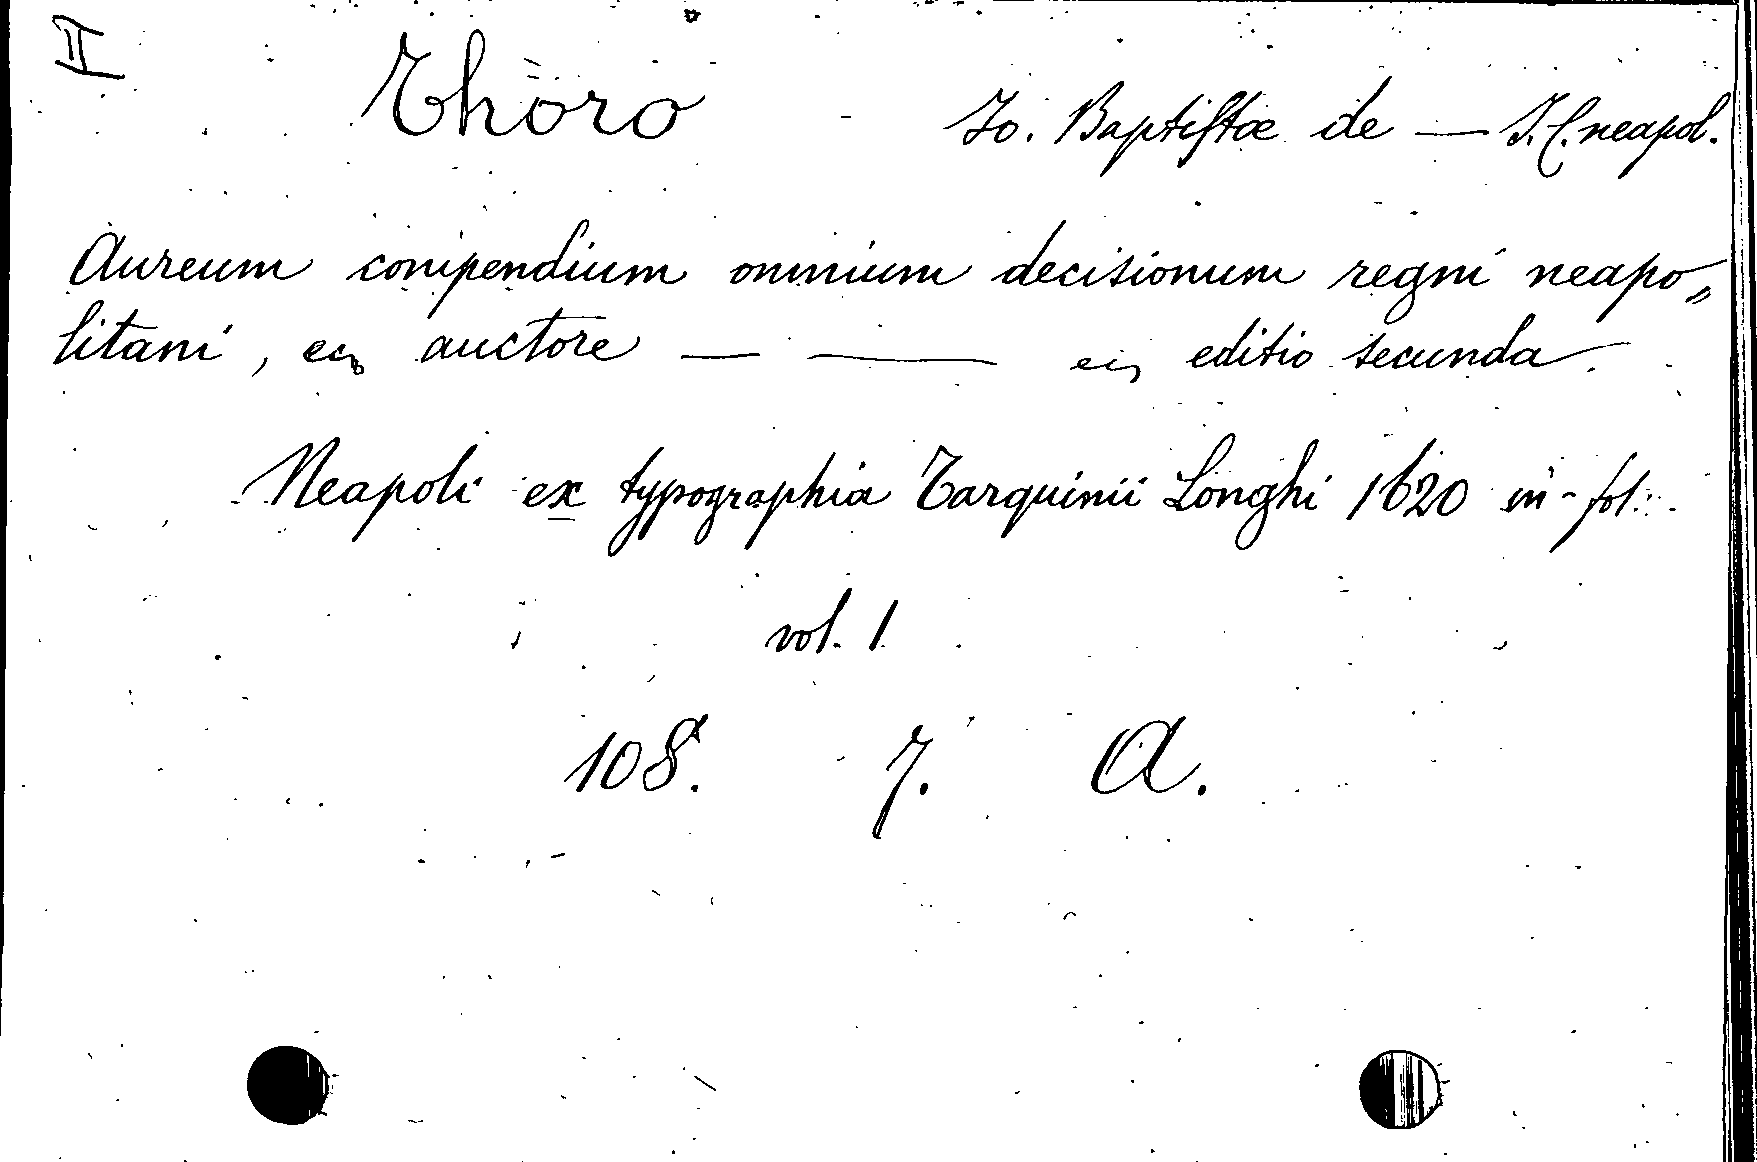 II
Thoro Jo. Baptistæ de — J. C. neapol.
Aureum compendium omnium decisionum regni neapo„
litani, ec, auctore — — ec, editio secunda.
Neapoli ex typographia Tarquinii Longhi 1620 in-fol.
vol. 1
108. 7. A.